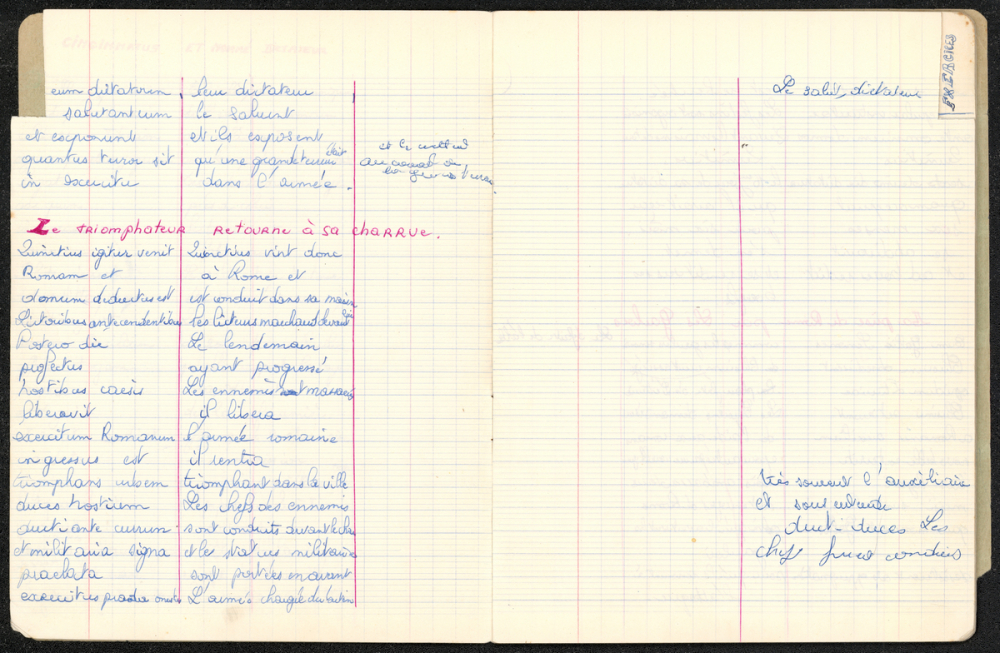 eum dictatorem leur dictateur
salutantium le saluent
et exponunt et ils exposent
quantus terror sit qu'une grande terreur était
in exercitu dans l'armée.
et le mettent
au
Le triomphateur retourne à sa charrue.
Quinctius igitur venit Quinctius vint donc
Romam et à Rome et
domum deductus est est conduit dans sa maison
Lictoribus antecedentibus les licteurs marchand devant lui
Postero die Le lendemain
profectus ayant progressé
hostibus caesis Les ennemis massacrés
liberavit il libera
exercitum Romanum l'armée romaine
ingressus est il rentra
triomphans urbem triomphant dans la ville
duces hostium Les chefs des ennemis
ducti ante currum sont conduits devant le char
et militaria signa et les statues militaires
praelata sont portées en avant
exercitus praeda L'armée chargée du butin
Le salut, dictateur
très souvent l'auxiliaire
et sous entendu
ducti-duces Les
chefs conduits